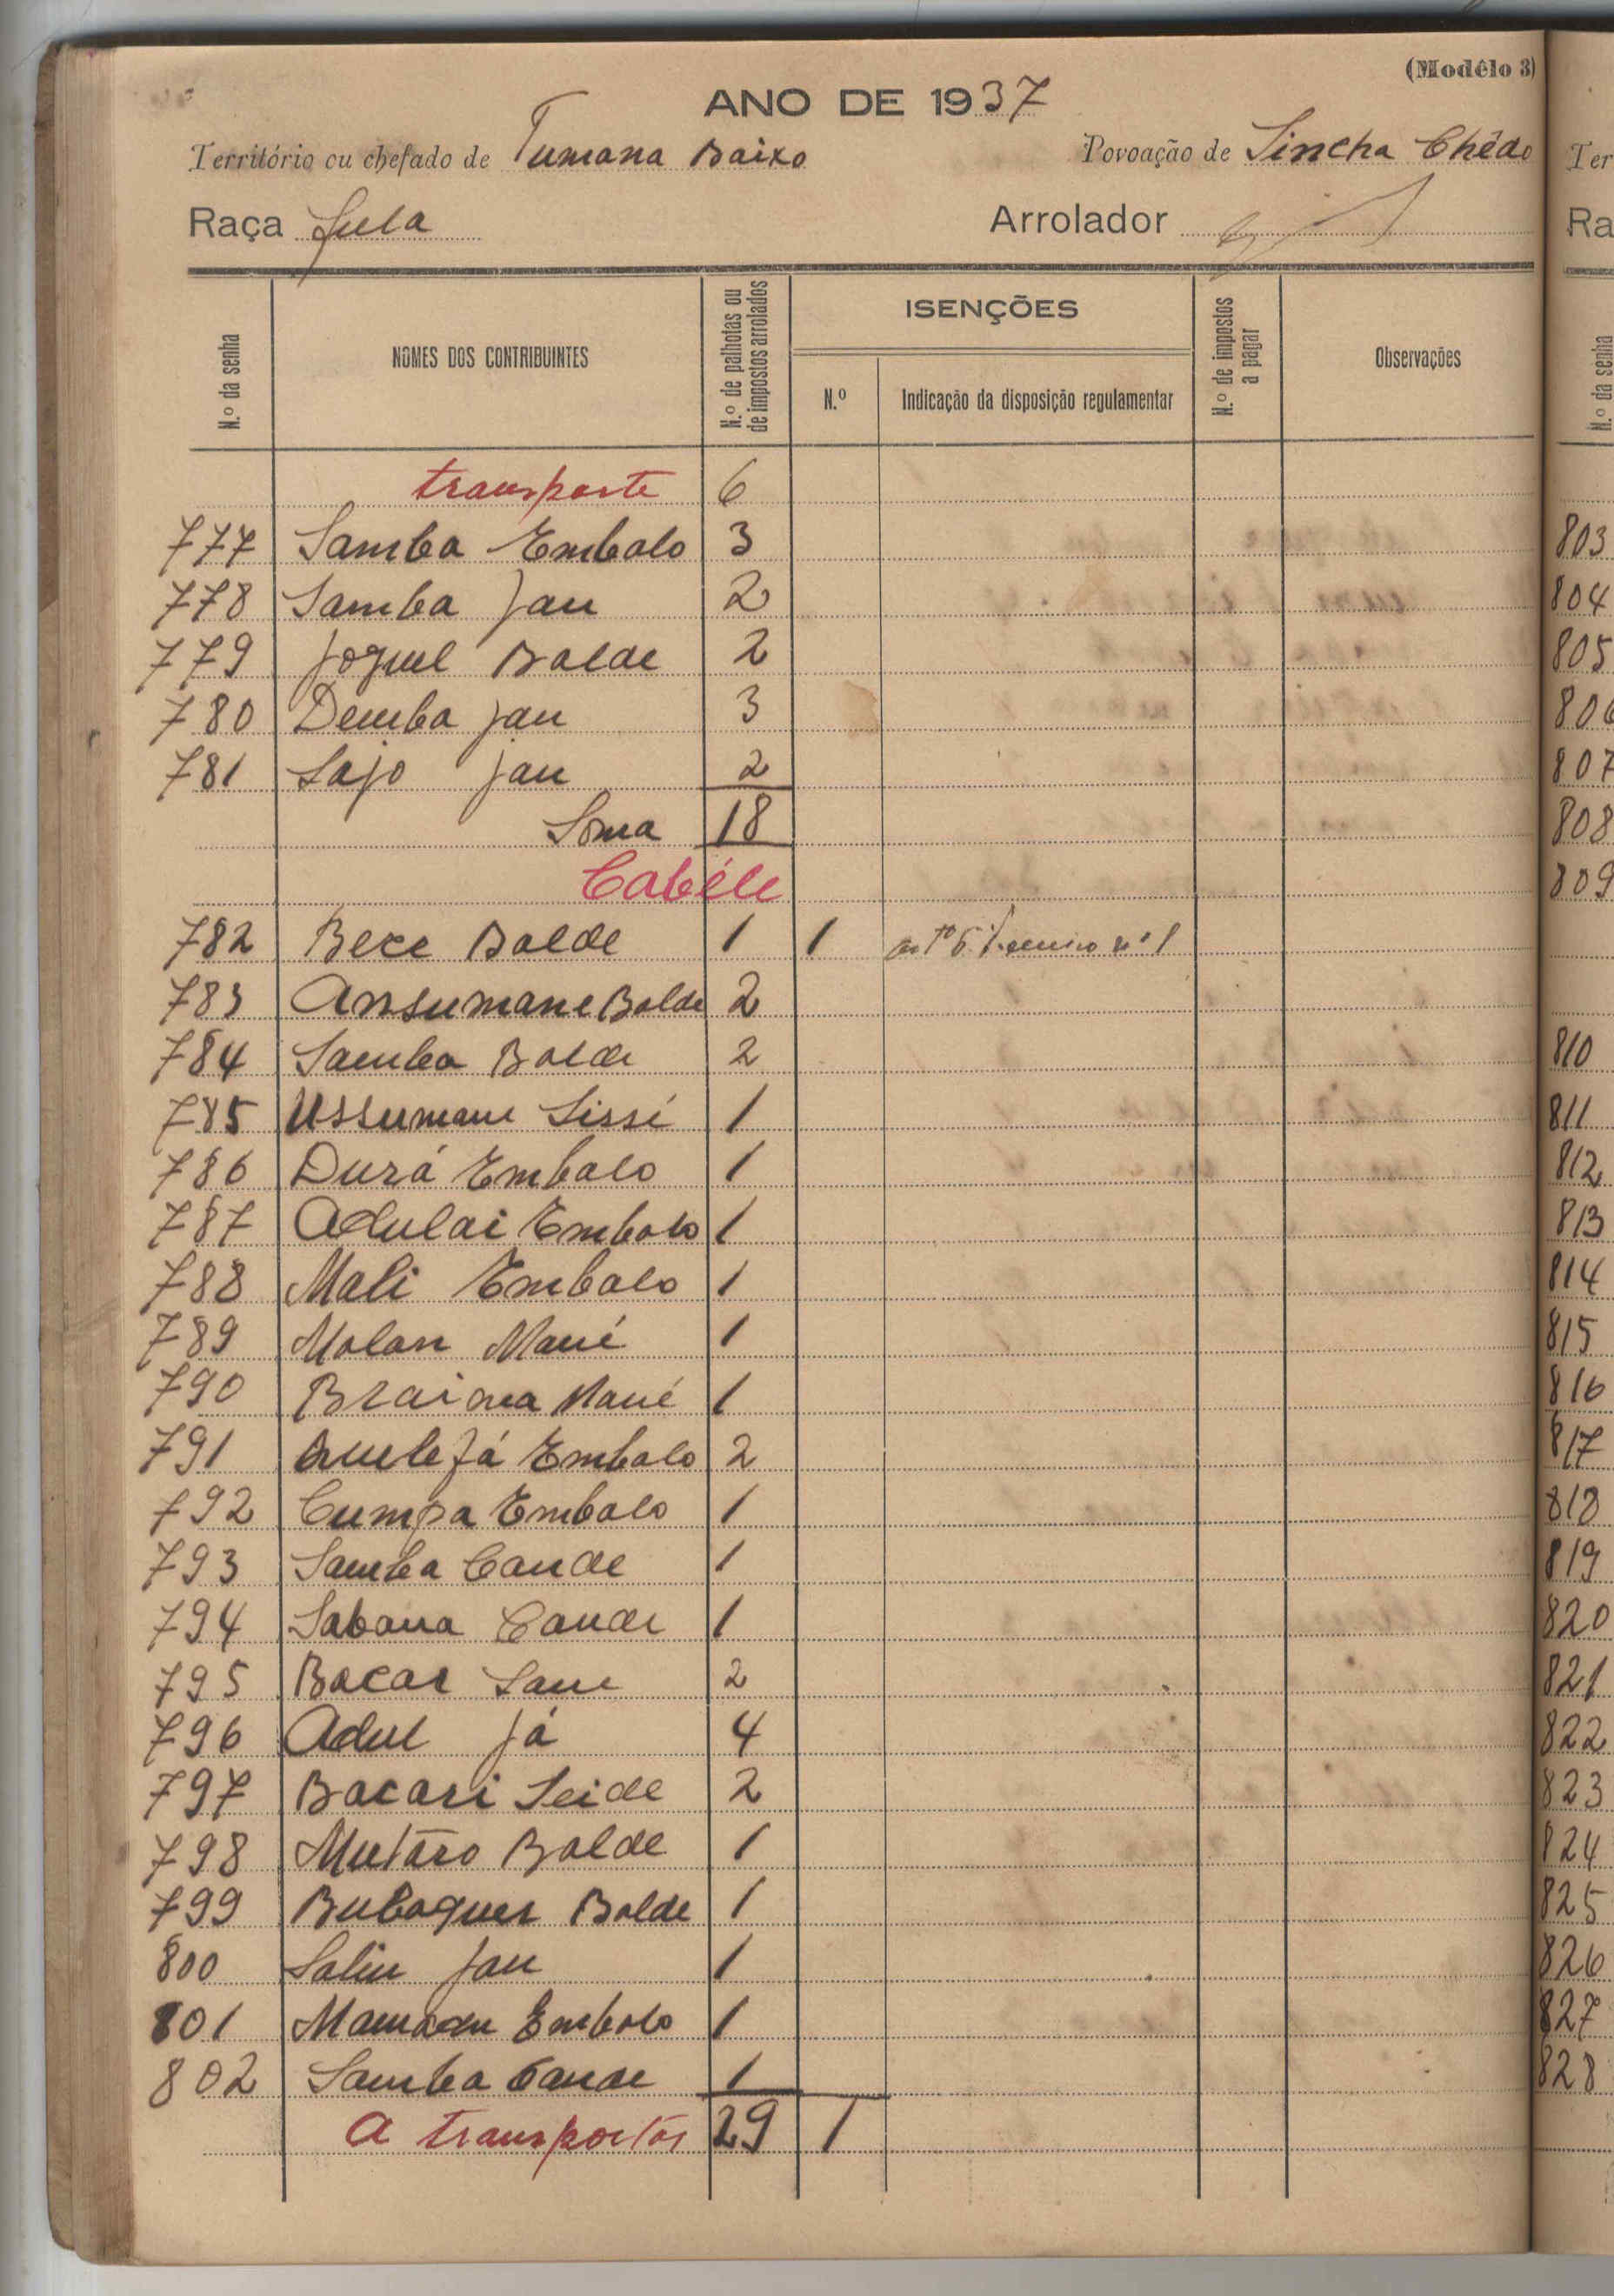 (Modêlo 3)
ANO DE 1937
Território ou chefado de Tumana Baixo Povoação de Sincha Chêdo
Raça Fula Arrolador
N.º da senha NOMES DOS CONTRIBUINTES N.º de palhotas ou de impostos arrolados ISENÇÕES N.º de impostos a pagar Observações
N.º Indicação da disposição regulamentar
transporte 6
777 Samba Embalo 3
778 Samba Jau 2
779 Joguel Balde 2
780 Demba Jau 3
781 Sajo Jau 2
Soma 18
Cabéle
782 Bece Balde 1 1 artº 6 nº 1
783 Ansumane Balde 2
784 Samba Balde 2
785 Ussumane Sissé 1
786 Durá Embalo 1
787 Adulai Embalo 1
788 Mali Embalo 1
789 Malan Mané 1
790 Braima Mané 1
791 Quelefá Embalo 2
792 Cumpa Embalo 1
793 Samba Cande 1
794 Sabana Cande 1
795 Bacar Sane 2
796 Adul Já 4
797 Bacari Seide 2
798 Mutaro Balde 1
799 Bubaquer Balde 1
800 Saliu Jau 1
801 Mamadu Embalo 1
802 Samba Cande 1
A transportar 29 1
Ter
Ra
N.º da senha
803
804
805
806
807
808
809
810
811
812
813
814
815
816
817
818
819
820
821
822
823
824
825
826
827
828